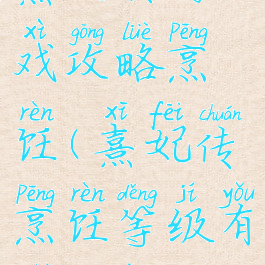 xì gōng lüè Pēng
戏攻略烹
rèn xī fēi chuán
饪(熹妃传
Pēng rèn děng jí yǒu
烹饪等级有